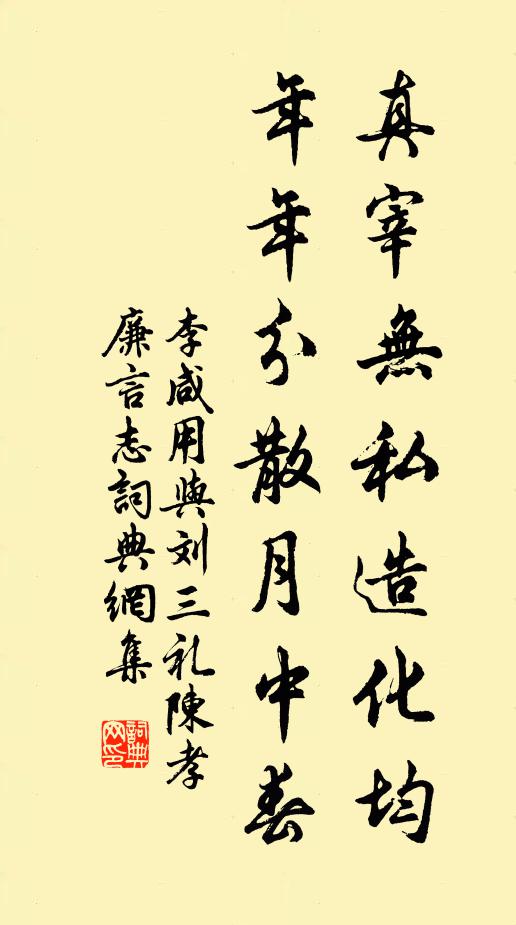 真宰無私造化均
年年分散月中春
李咸用與刘三礼陳孝
廉言志詞典網集
詞典
网印